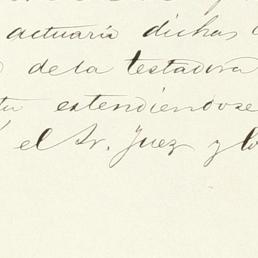 actuaria dichas
de la testadora
extendiendose
el Sr. Juez y lo